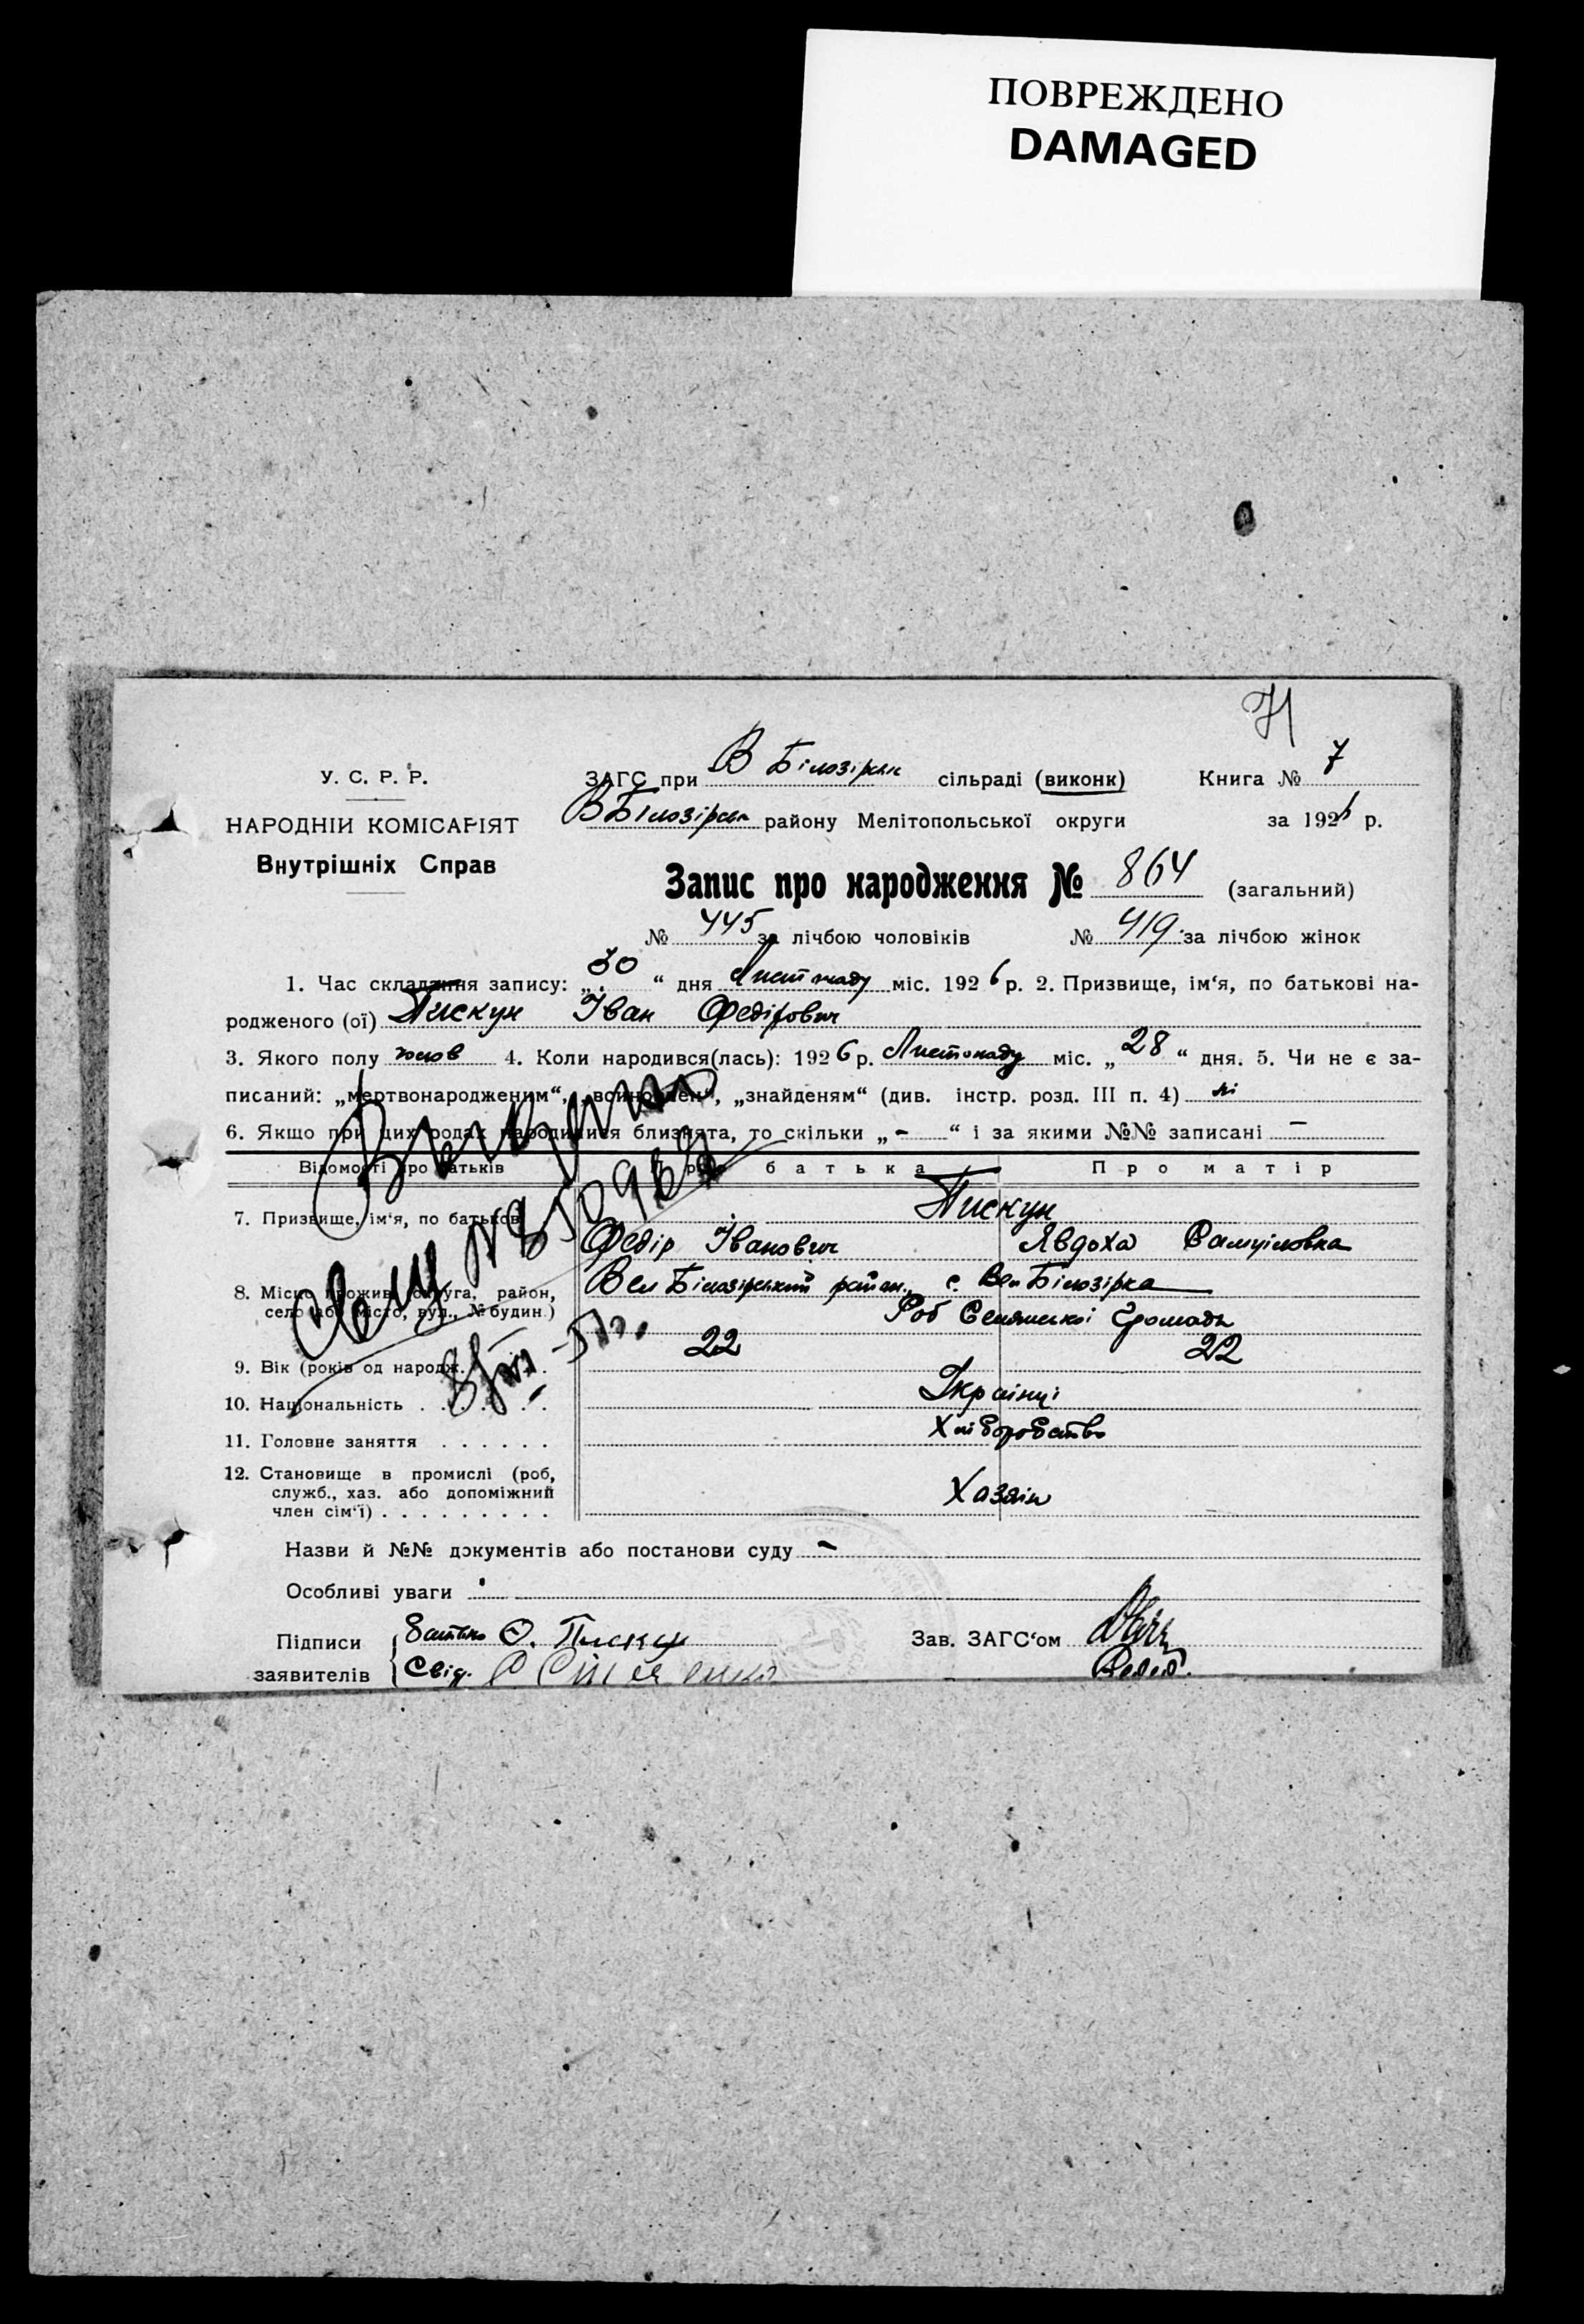 ПОВРЕЖДЕНО
DAMAGED
71
У. С. Р. Р.
ЗАГС при В Білозірськ сільраді (виконк) Книга № 7
НАРОДНІЙ КОМІСАРІЯТ
В Білозірськ району Мелітопольської округи за 1926 р.
Внутрішніх Справ
Запис про народження № 864 (загальний)
№ 445 за лічбою чоловіків № 419 за лічбою жінок
1. Час складання запису: „30“ дня Листопаду міс. 1926 р. 2. Призвище, ім'я, по батькові на-
родженого (ої) Пискун Іван Федірович
3. Якого полу чолов 4. Коли народився(лась): 1926 р. Листопаду міс. „28“ дня. 5. Чи не є за-
писаний: „мертвонародженим“, „знайденям“ (див. інстр. розд. III п. 4) ні
6. Якщо при цих родах народилися близнята, то скільки „-“ і за якими №№ записані -
Відомості про батьків Про батька Про матір
7. Призвище, ім'я, по батькові Пискун
Федір Іванович Явдоха Самуіловна
8. Місце прожив. округа, район, Вел Білозірський район, с. Вел Білозірка
село або місто, вул., № будин.) Роб Селянської Громади
9. Вік (років од народж. 22 22
10. Національність . . . . . . . Українці
11. Головне заняття . . . . . . Хліборобство
12. Становище в промислі (роб,
служб., хаз. або допоміжний Хазяїн
член сім'ї) . . . . . . . . .
Назви й №№ документів або постанови суду -
Особливі уваги
Підписи Батько Ѳ. Пискун Зав. ЗАГС'ом
заявителів Свід.